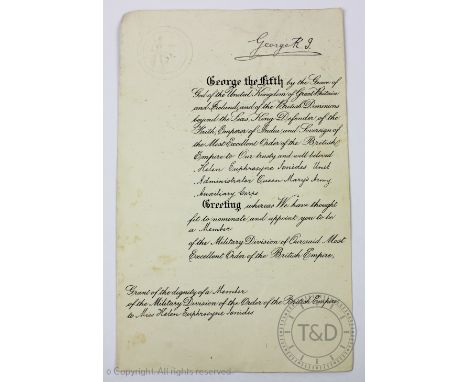 George R. I.
George the Fifth by the Grace of
God of the United Kingdom of Great Britain
and Ireland, and of the British Dominions
beyond the Seas, King, Defender of the
Faith, Emperor of India and Sovereign of
the Most Excellent Order of the British
Empire to Our trusty and well beloved
Helen Euphrosyne Ionides Unit
Administrator Queen Mary's Army
Auxiliary Corps
Greeting whereas We have thought
fit to nominate and appoint you to be
a Member
of the Military Division of Our said Most
Excellent Order of the British Empire,
Grant of the dignity of a Member
of the Military Division of the Order of the British Empire
to Miss Helen Euphrosyne Ionides
T&D
© Copyright. All rights reserved.